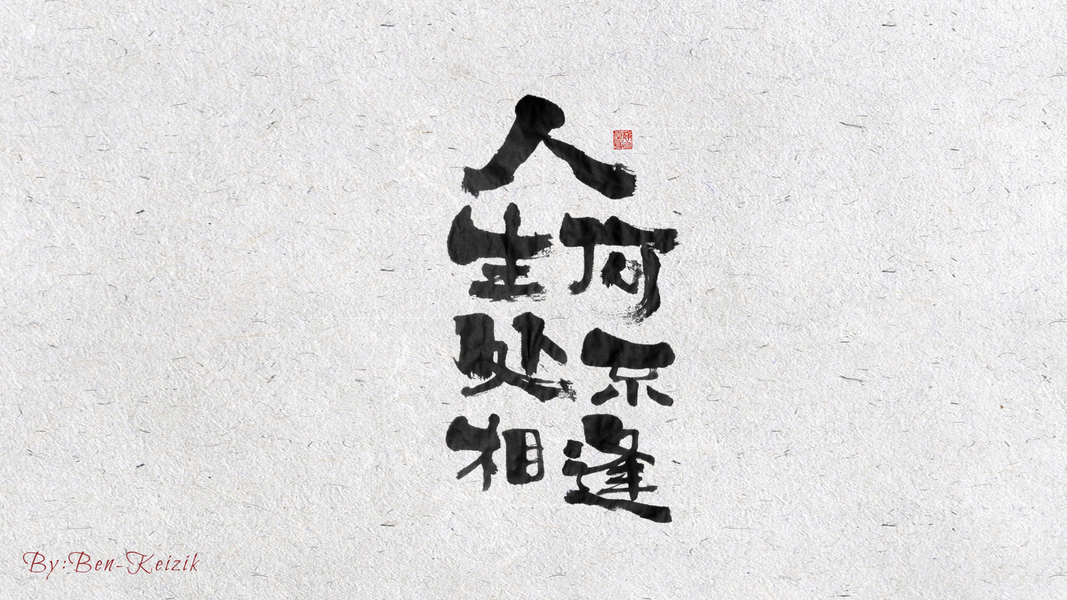 人
生何
处不
相逢
By:Ben-Keizik